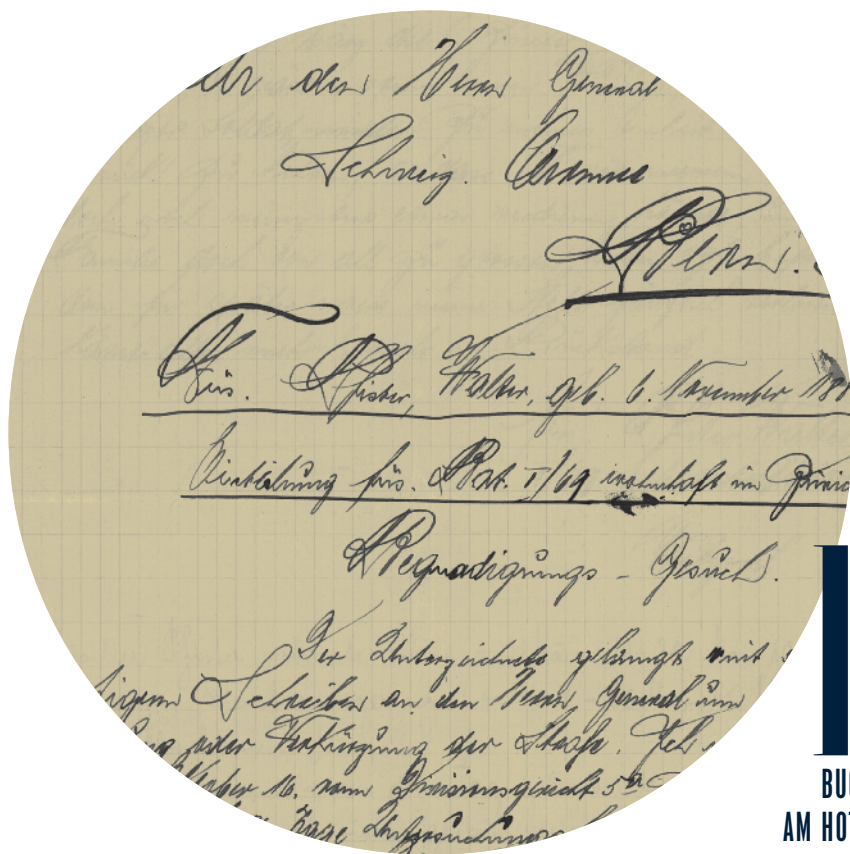 den Herrn General
Schweiz. Armee
Bern.
Füs. Pfister, Walter, geb. 6. November 188
Einteilung füs. Bat. I/69 wohnhaft im
Begnadigungs - Gesuch.
Der Unterzeichnete gelangt mit
Schreiben an den Herrn General um
oder Verkürzung der Strafe. Ich
16. vom Divisionsgericht 5a
Tage Untersuchungs
BU
AM HOT